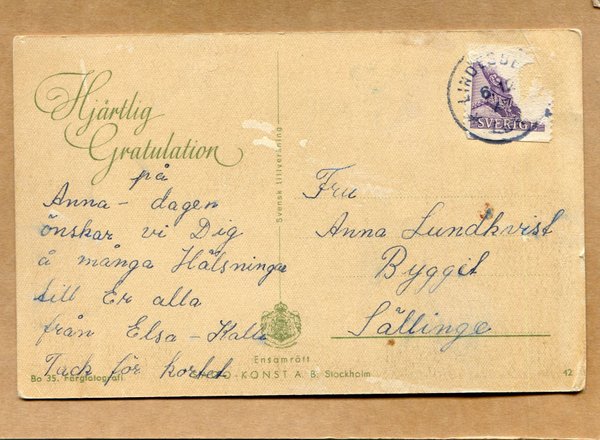 Hjärtlig
Gratulation
på
Anna - dagen
önskar vi Dig
å många Hälsningar
till Er alla
från Elsa - Kalle
Tack för kortet
Bo 35. Färgfotografi
Svensk tillverkning
Ensamrätt
KONST A. B. Stockholm
SVERIGE
Fru
Anna Lundkvist
Bygget
Sällinge
12